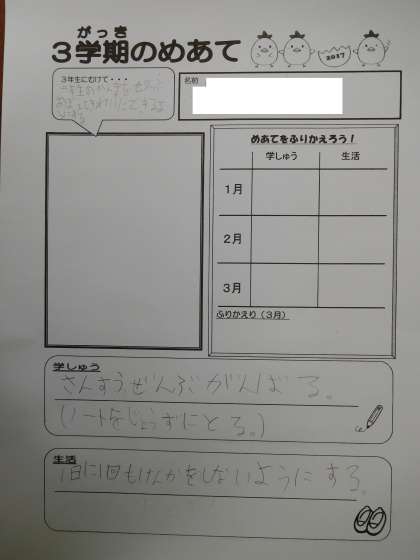 がっき
3学期のめあて
2017
3年生にむけて・・・
名前
二年生のかん字を
めあてをふりかえろう！
学しゅう 生活
1月
2月
3月
ふりかえり（3月）
学しゅう
さんすうぜんぶがんばる。
(ノートをじょうずにとる。)
生活
1日に1回もけんかをしないようにする。